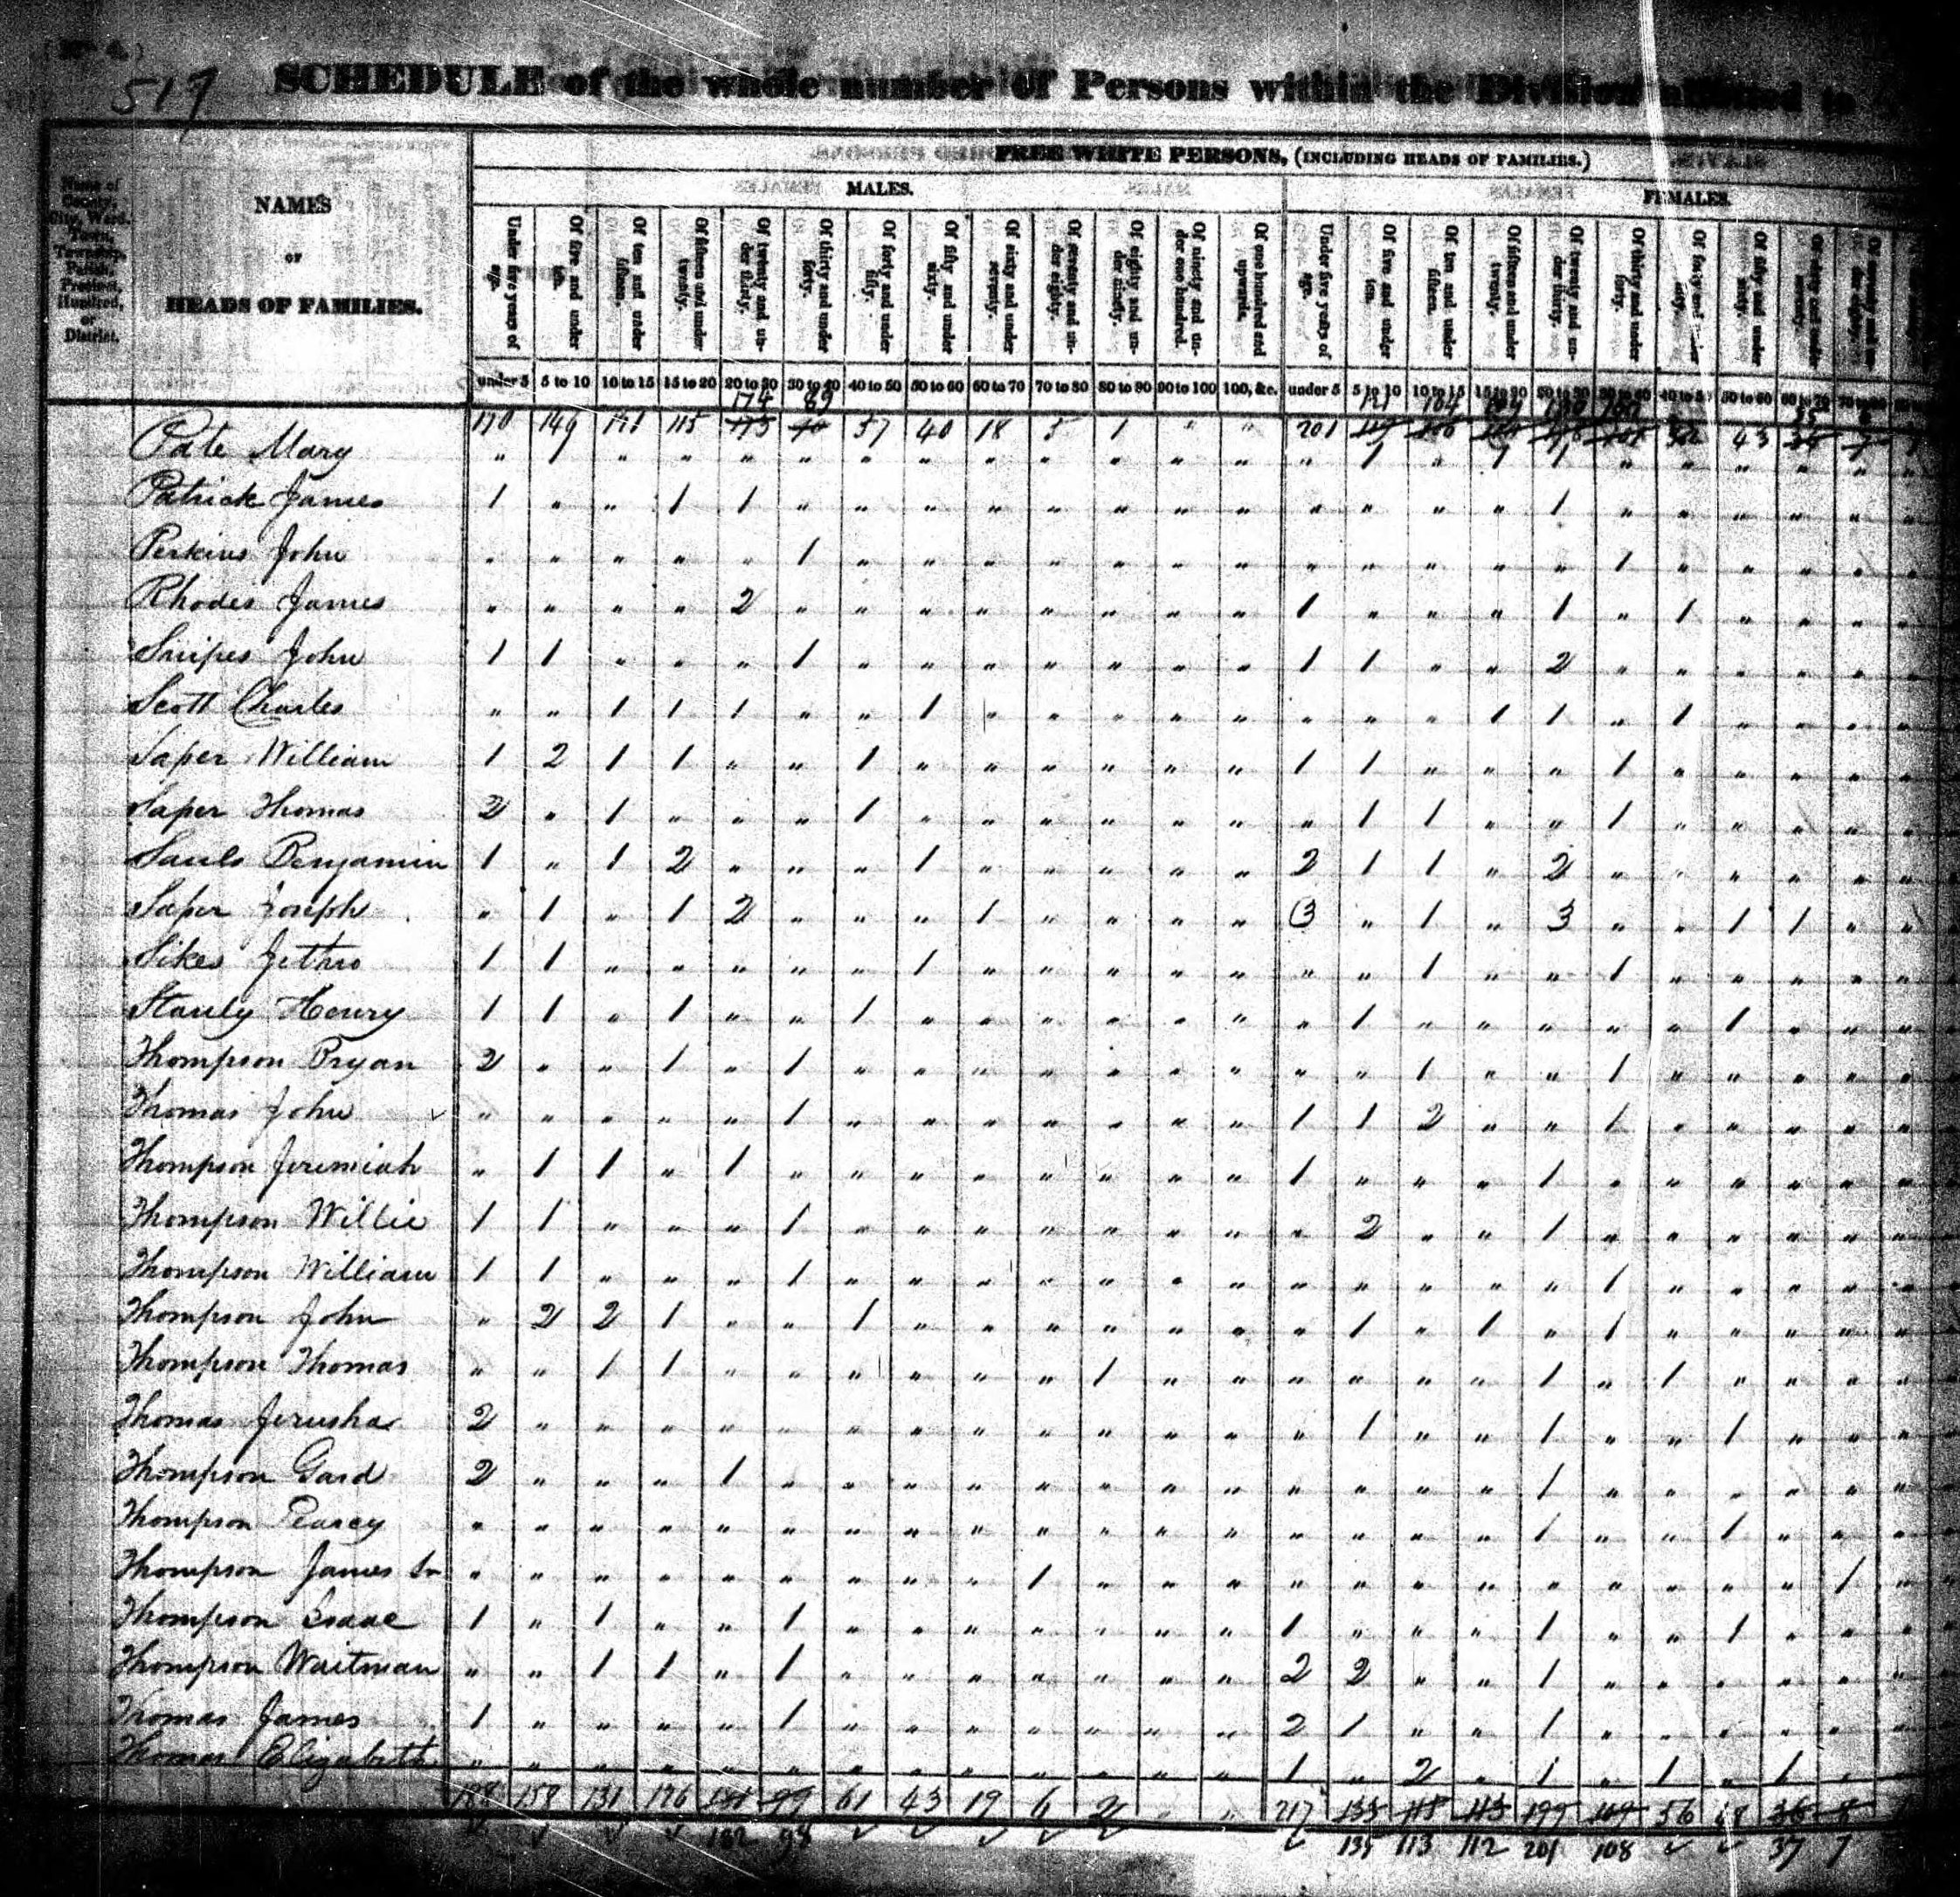 517
SCHEDULE of the whole number of Persons within the Division allotted to
FREE WHITE PERSONS, (INCLUDING HEADS OF FAMILIES.)
MALES. FEMALES.
Name of County, City, Ward, Town, Township, Parish, Precinct, Hundred, or District.
NAMES
OR
HEADS OF FAMILIES.
Under five years of age. Of five and under ten. Of ten and under fifteen. Of fifteen and under twenty. Of twenty and under thirty. Of thirty and under forty. Of forty and under fifty. Of fifty and under sixty. Of sixty and under seventy. Of seventy and under eighty. Of eighty and under ninety. Of ninety and under one hundred. Of one hundred and upwards. Under five years of age. Of five and under ten. Of ten and under fifteen. Of fifteen and under twenty. Of twenty and under thirty. Of thirty and under forty. Of forty and under fifty. Of fifty and under sixty. Of sixty and under seventy. Of seventy and under eighty.
under 5 5 to 10 10 to 15 15 to 20 20 to 30 30 to 40 40 to 50 50 to 60 60 to 70 70 to 80 80 to 90 90 to 100 100, &c. under 5 5 to 10 10 to 15 15 to 20 20 to 30 30 to 40 40 to 50 50 to 60 60 to 70 70 to 80
174 89
170 149 121 115 57 40 18 5 1 " " 201 43
Pate Mary " 1 " " " " " " " " " " " " 1 " 1 1 " " " " "
Patrick James 1 " " 1 1 " " " " " " " " " " " " 1 " " " " "
Perkins John " " " " " 1 " " " " " " " " " " " " 1 " " " "
Rhodes James " " " " 2 " " " " " " " " 1 " " " 1 " 1 " " "
Snipes John 1 1 " " " 1 " " " " " " " 1 1 " " 2 " " " " "
Scott Charles " " 1 1 1 " " 1 " " " " " " " " 1 1 " 1 " " "
Saper William 1 2 1 1 " " 1 " " " " " " 1 1 " " " 1 " " " "
Saper Thomas 2 " 1 " " " 1 " " " " " " " 1 1 " " 1 " " " "
Sauls Benjamin 1 " 1 2 " " " 1 " " " " " 2 1 1 " 2 " " " " "
Saper Joseph " 1 " 1 2 " " " 1 " " " " 3 " 1 " 3 " " 1 1 "
Sikes Jethro 1 1 " " " " " 1 " " " " " " " 1 " " 1 " " " "
Stanly Henry 1 1 " 1 " " 1 " " " " " " " 1 " " " " " 1 " "
Thompson Bryan 2 " " 1 " 1 " " " " " " " " " 1 " " 1 " " " "
Thomas John " " " " " 1 " " " " " " " 1 1 2 " " 1 " " " "
Thompson Jeremiah " 1 1 " 1 " " " " " " " " 1 " " " 1 " " " " "
Thompson Willie 1 1 " " " 1 " " " " " " " " 2 " " 1 " " " " "
Thompson William 1 1 " " " 1 " " " " " " " " " " " " 1 " " " "
Thompson John " 2 2 1 " " 1 " " " " " " " 1 " 1 " 1 " " " "
Thompson Thomas " " 1 1 " " " " " " 1 " " " " " " 1 " 1 " " "
Thomas Jerusha 2 " " " " " " " " " " " " " 1 " " 1 " " 1 " "
Thompson Gard 2 " " " 1 " " " " " " " " " " " " 1 " " " " "
Thompson Pearcy " " " " " " " " " " " " " " " " " 1 " " 1 " "
Thompson James Sr " " " " " " " " " 1 " " " " " " " " " " " " 1
Thompson Isaac 1 " 1 " " 1 " " " " " " " 1 " " " 1 " " 1 " "
Thompson Waitman " " 1 1 " 1 " " " " " " " 2 2 " " 1 " " " " "
Thomas James 1 " " " " 1 " " " " " " " 2 1 " " 1 " " " " "
Thomas Elizabeth " " " " " " " " " " " " " 1 " 2 " 1 " 1 " 1 "
188 158 131 126 181 99 61 43 19 6 2 " " 217 133 118 113 199 109 56 48 36 8
182 98 135 113 112 201 108 37 7